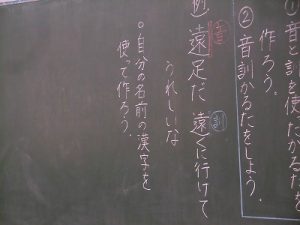 ①音と訓を使ったかるたを
作ろう。
②音訓かるたをしよう。
例 音 訓
遠足だ 遠くに行けて
うれしいな
○自分の名前の漢字を
使って作ろう。